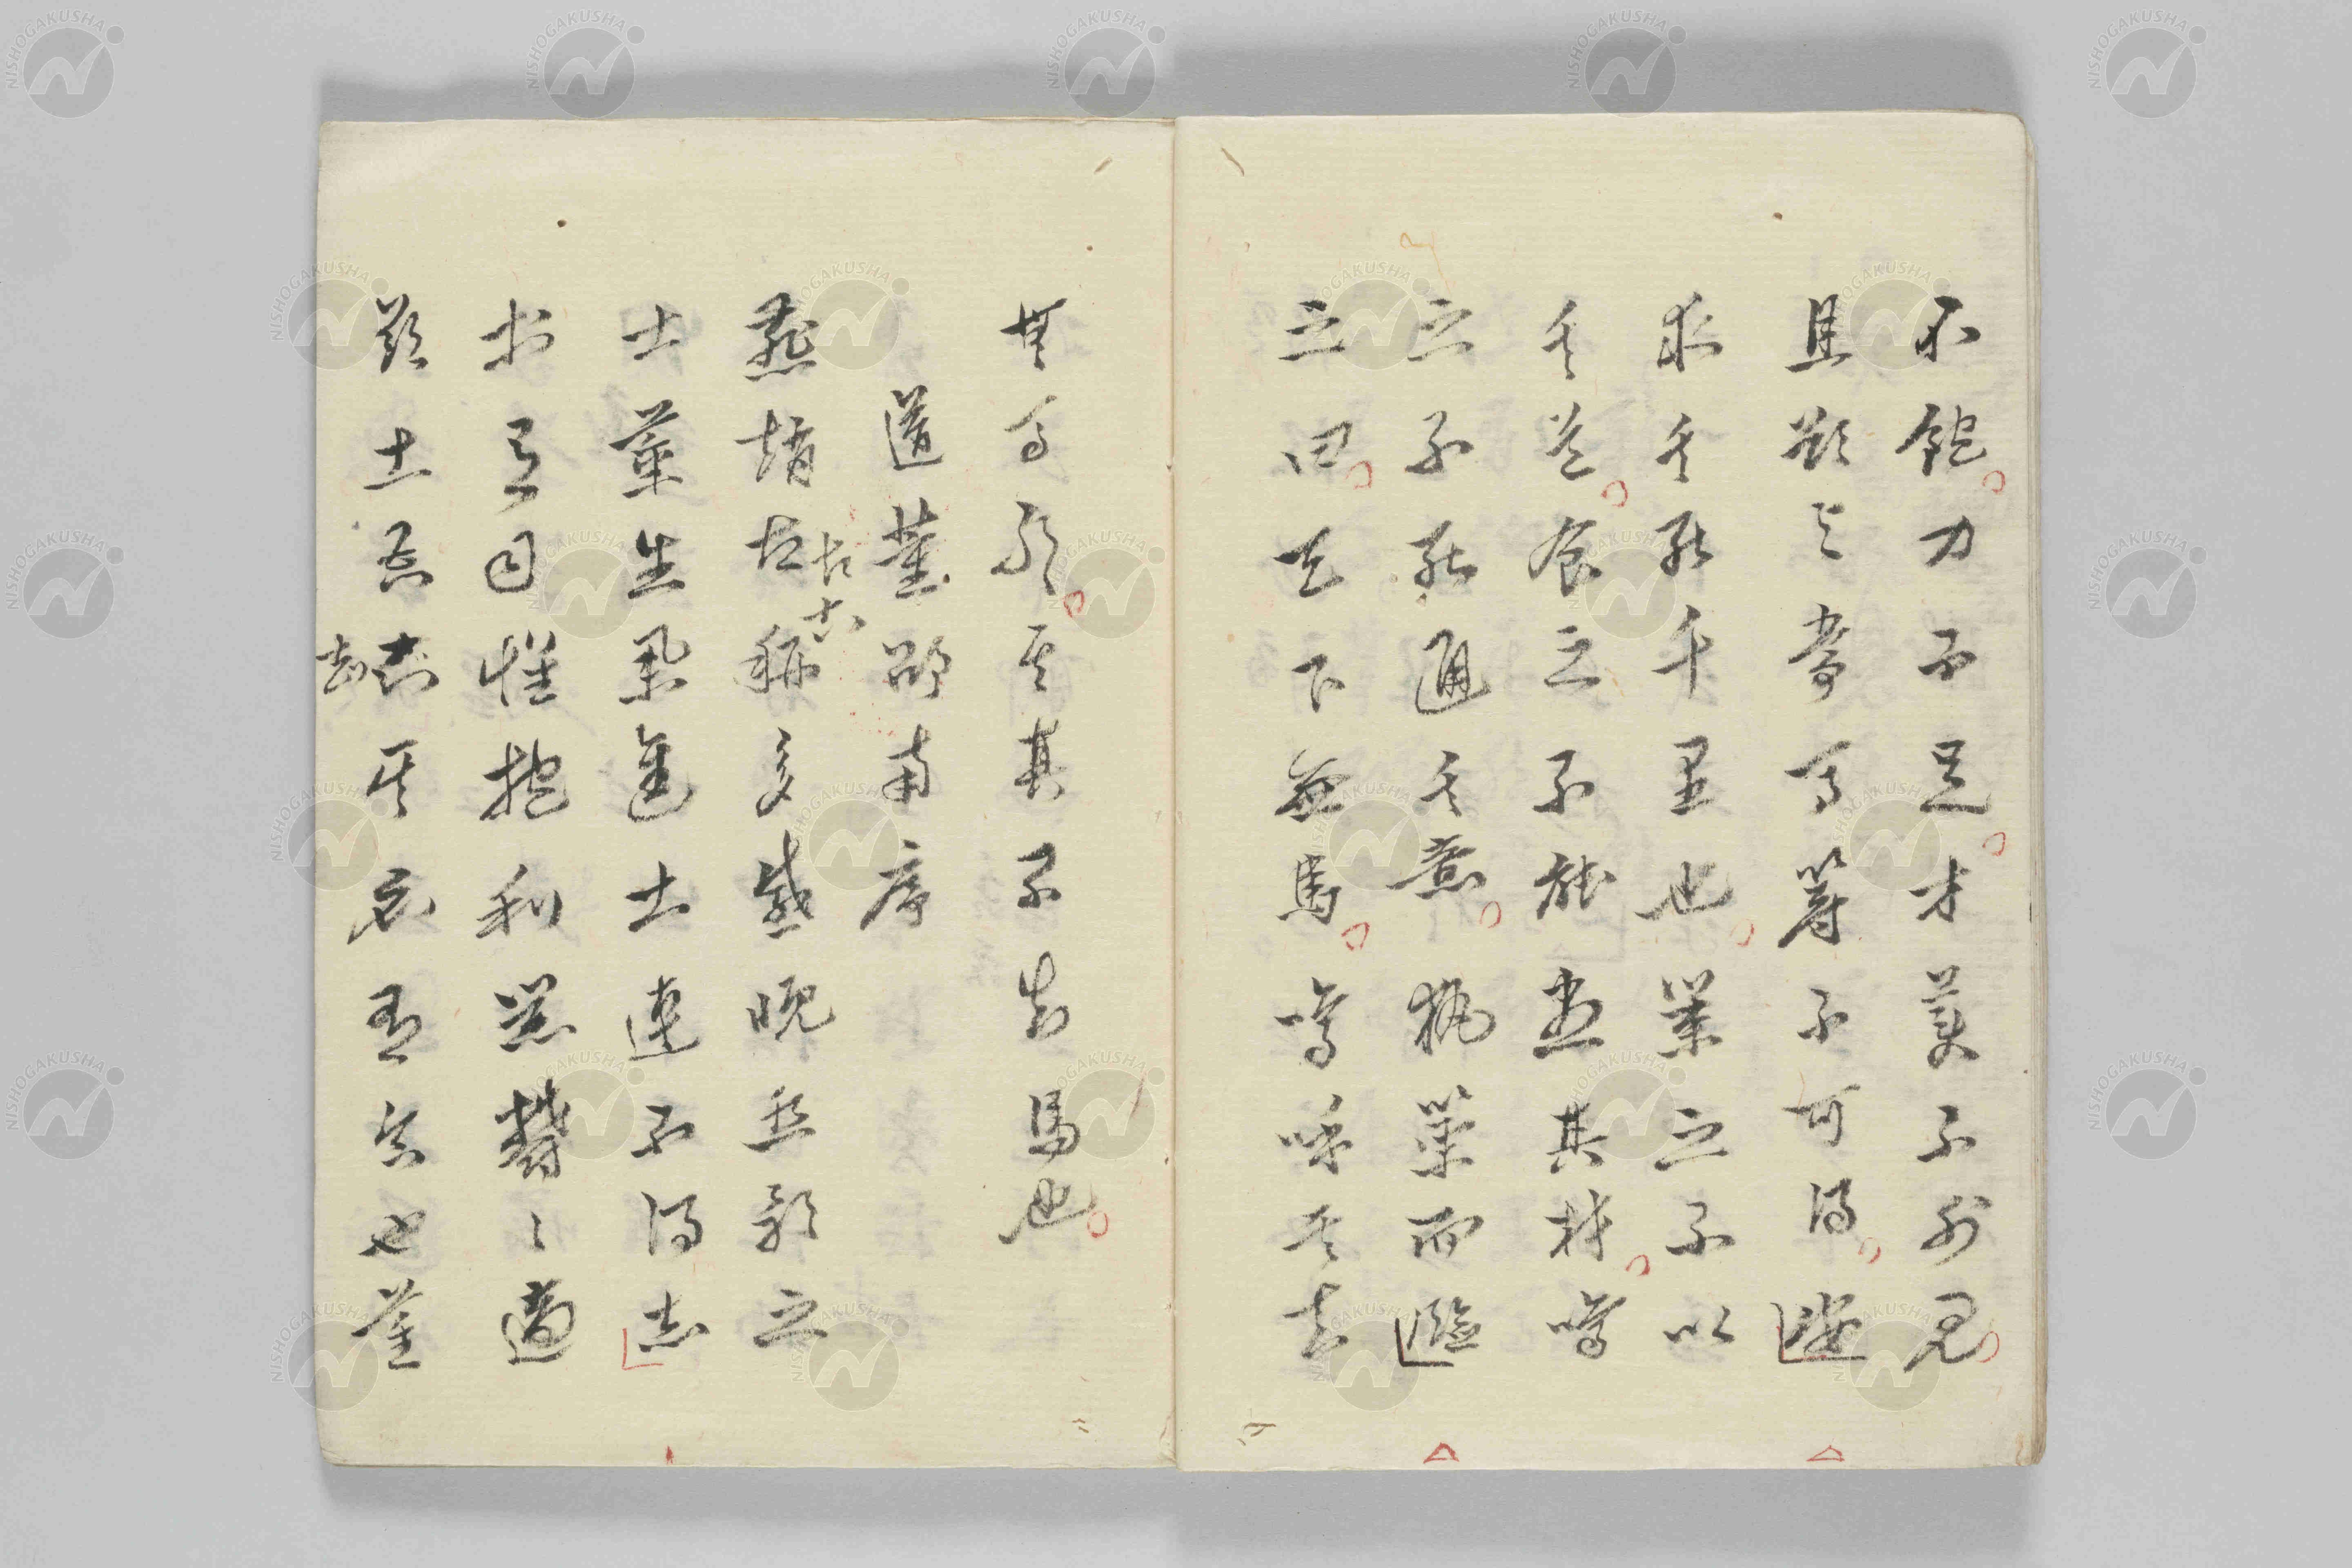 不飽力不足才美不外見
且欲與常馬等不可得安
求其能千里也策之不以
其道食之不能盡其材鳴
之不能通其意執策而臨
之曰天下無馬嗚呼其真
無馬耶其真不知馬也
送董邵南序
燕趙古稱多感慨悲歌之
士董生舉進士連不得志
於有司懷抱利器鬱〻適
茲土吾知其必有合也董